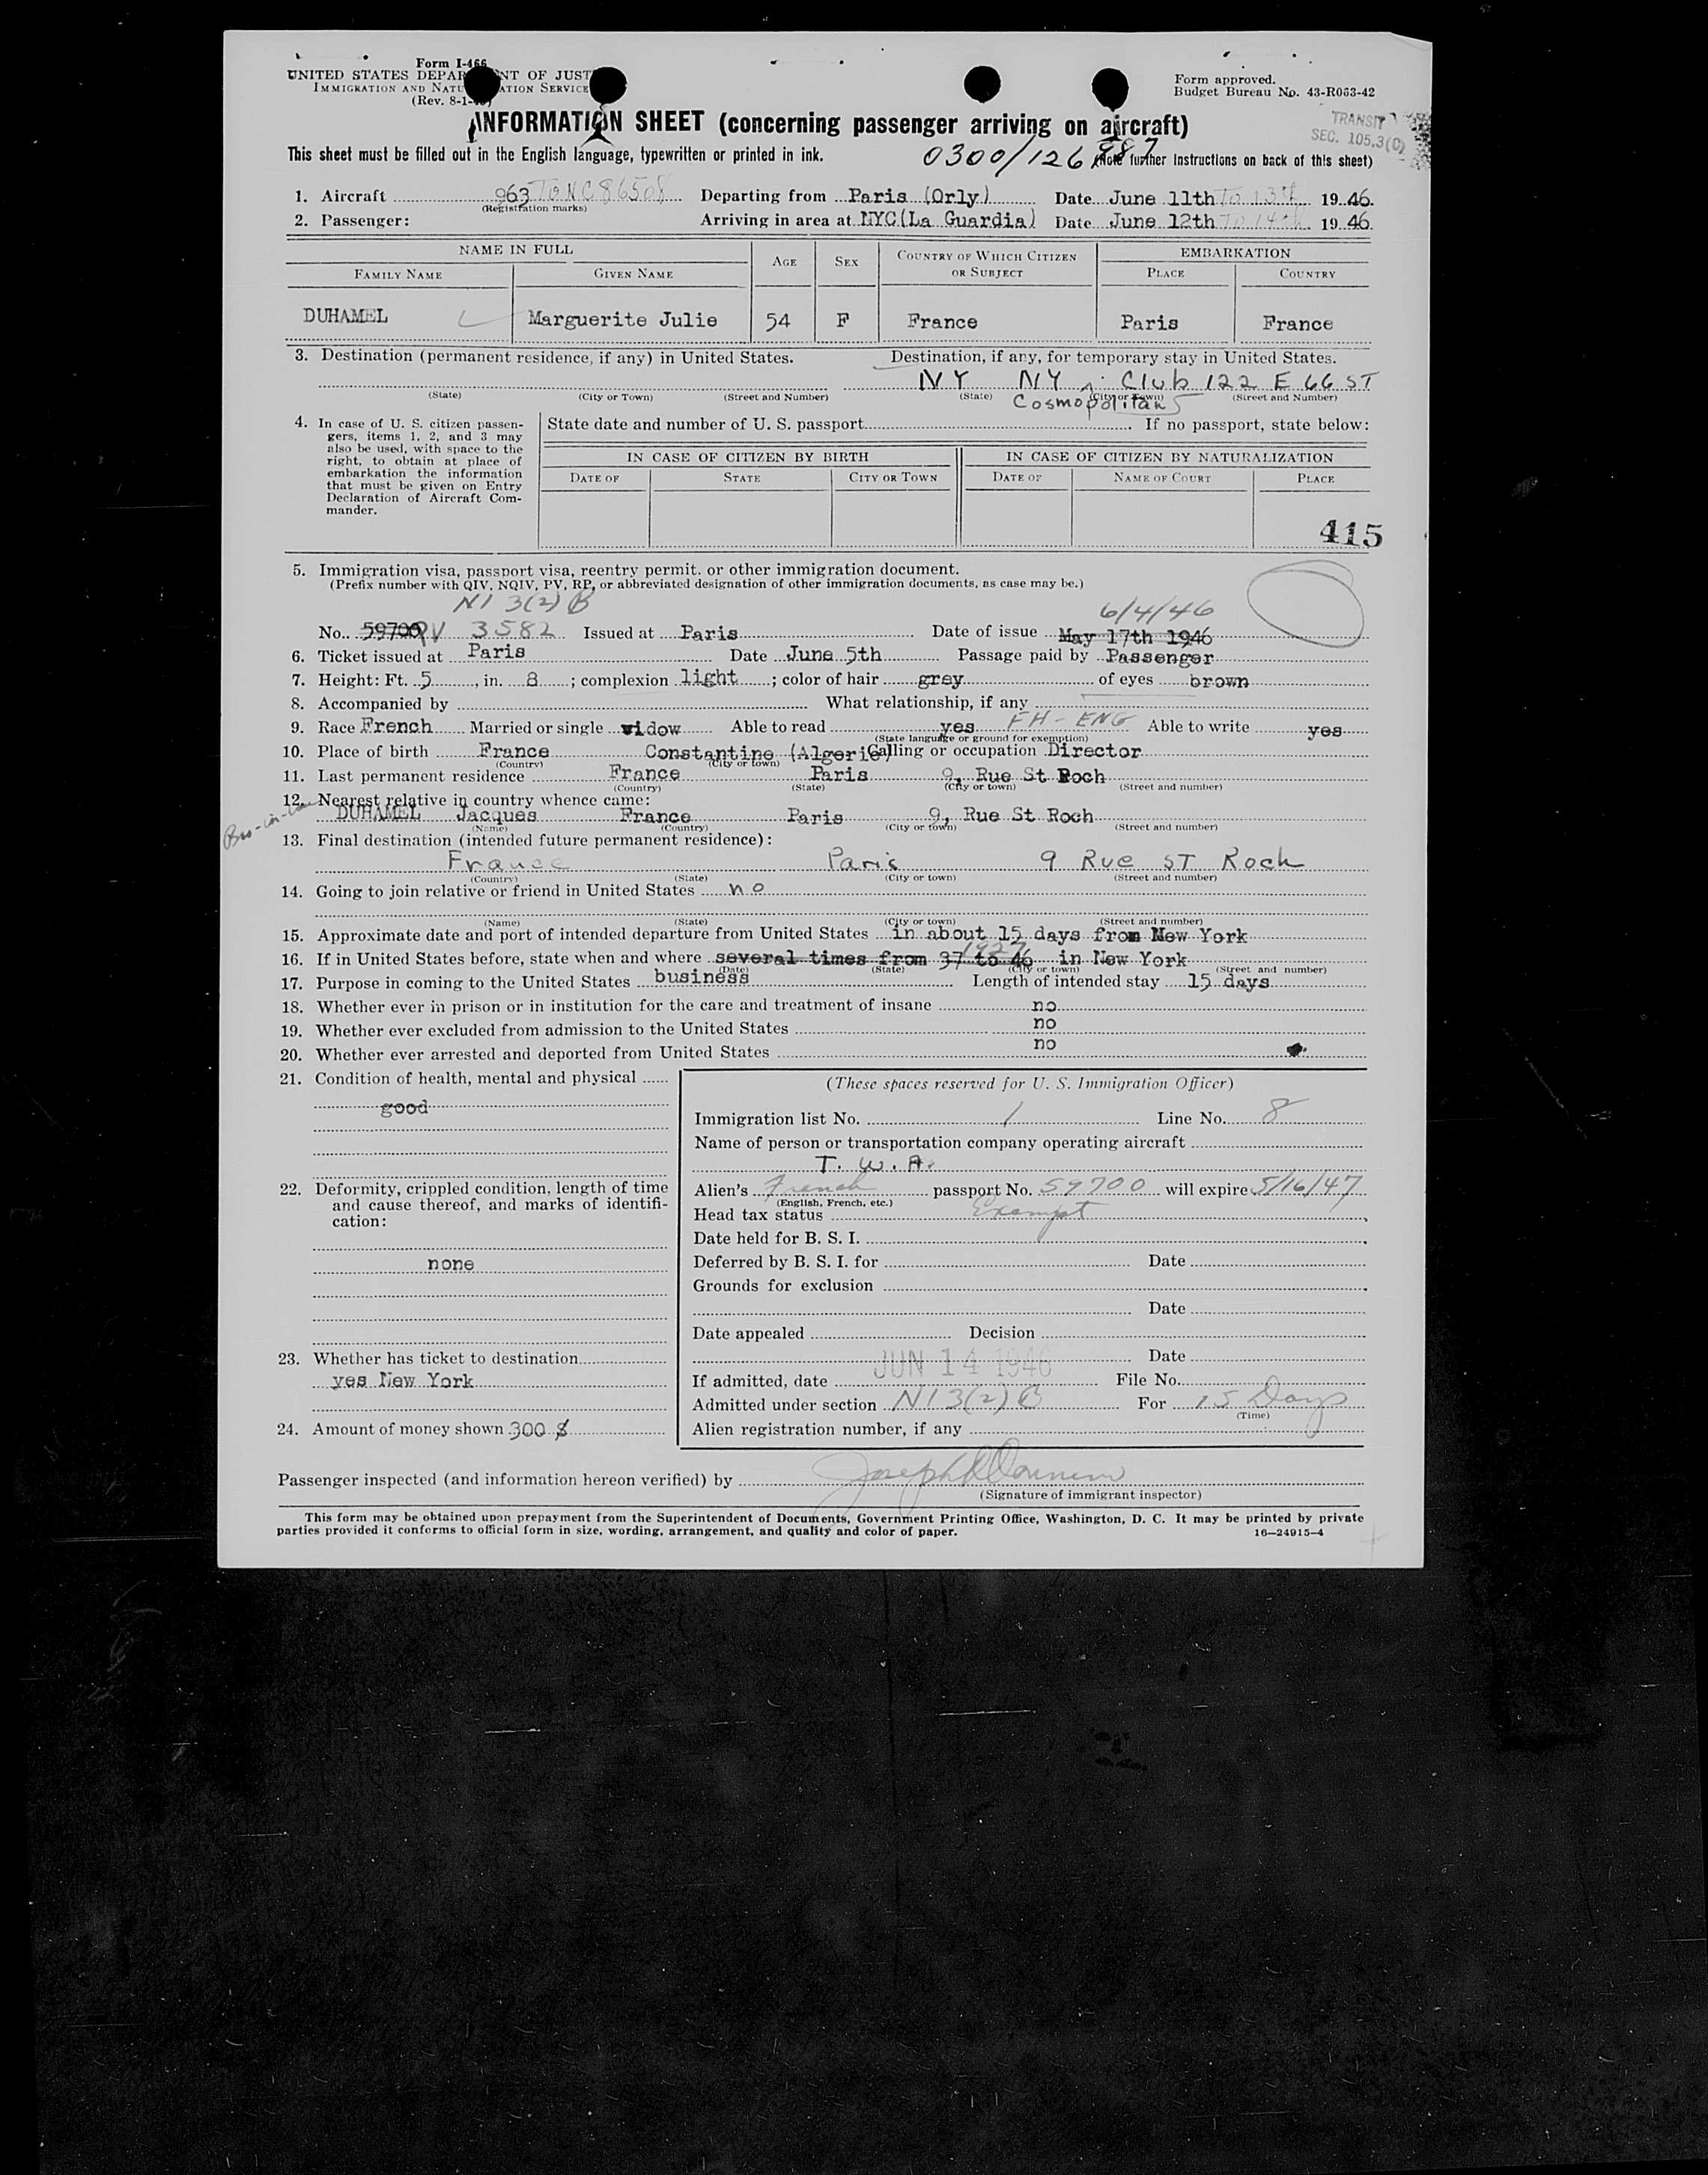 Form I-466
UNITED STATES DEPAR NT OF JUST
IMMIGRATION AND NATU ATION SERVICE
(Rev. 8-1-
Form approved.
Budget Bureau No. 43-R063-42
TRANSIT
SEC. 105.3(C)
INFORMATION SHEET (concerning passenger arriving on aircraft)
This sheet must be filled out in the English language, typewritten or printed in ink.
0300/126 (Note further Instructions on back of this sheet)
1. Aircraft 963 TO NC 86508 Departing from Paris (Orly) Date June 11th TO 13th 1946.
(Registration marks)
2. Passenger: Arriving in area at NYC(La Guardia) Date June 12th TO 14th 1946.
NAME IN FULL AGE SEX COUNTRY OF WHICH CITIZEN OR SUBJECT EMBARKATION
FAMILY NAME GIVEN NAME PLACE COUNTRY
DUHAMEL Marguerite Julie 54 F France Paris France
3. Destination (permanent residence, if any) in United States. Destination, if any, for temporary stay in United States.
NY NY Club 122 E 66 ST
(State) (City or Town) (Street and Number) (State) (City or Town) (Street and Number)
Cosmopolitan
4. In case of U. S. citizen passengers, items 1, 2, and 3 may also be used, with space to the right, to obtain at place of embarkation the information that must be given on Entry Declaration of Aircraft Commander.
State date and number of U. S. passport If no passport, state below:
IN CASE OF CITIZEN BY BIRTH IN CASE OF CITIZEN BY NATURALIZATION
DATE OF STATE CITY OR TOWN DATE OF NAME OF COURT PLACE
415
5. Immigration visa, passport visa, reentry permit. or other immigration document.
(Prefix number with QIV, NQIV, PV, RP, or abbreviated designation of other immigration documents, as case may be.)
NI 3(2) B
6/4/46
No. 59700 PV 3582 Issued at Paris Date of issue May 17th 1946
6. Ticket issued at Paris Date June 5th Passage paid by Passenger
7. Height: Ft. 5, in. 8; complexion light; color of hair grey of eyes brown
8. Accompanied by What relationship, if any
9. Race French Married or single widow Able to read yes FH-ENG Able to write yes
(State language or ground for exemption)
10. Place of birth France Constantine (Algerie) Calling or occupation Director
(Country) (City or town)
11. Last permanent residence France Paris 9, Rue St Roch
(Country) (State) (City or town) (Street and number)
12. Nearest relative in country whence came:
Bro-in-law DUHAMEL Jacques France Paris 9, Rue St Roch
(Name) (Country) (City or town) (Street and number)
13. Final destination (intended future permanent residence):
France Paris 9 Rue ST Roch
(Country) (State) (City or town) (Street and number)
14. Going to join relative or friend in United States no
(Name) (State) (City or town) (Street and number)
15. Approximate date and port of intended departure from United States in about 15 days from New York
1927
16. If in United States before, state when and where several times from 37 to 46 in New York
(Date) (State) (City or town) (Street and number)
17. Purpose in coming to the United States business Length of intended stay 15 days
18. Whether ever in prison or in institution for the care and treatment of insane no
19. Whether ever excluded from admission to the United States no
20. Whether ever arrested and deported from United States no
21. Condition of health, mental and physical
good
22. Deformity, crippled condition, length of time and cause thereof, and marks of identification:
none
23. Whether has ticket to destination
yes New York
24. Amount of money shown 300 $
(These spaces reserved for U. S. Immigration Officer)
Immigration list No. 1 Line No. 8
Name of person or transportation company operating aircraft
T. W. A.
Alien's French passport No. 59700 will expire 5/16/47
(English, French, etc.)
Head tax status Exempt
Date held for B. S. I.
Deferred by B. S. I. for Date
Grounds for exclusion
Date
Date appealed Decision
Date
JUN 14 1946
If admitted, date File No.
Admitted under section NI 3(2) B For 15 Days
(Time)
Alien registration number, if any
Passenger inspected (and information hereon verified) by Joseph
(Signature of immigrant inspector)
This form may be obtained upon prepayment from the Superintendent of Documents, Government Printing Office, Washington, D. C. It may be printed by private
parties provided it conforms to official form in size, wording, arrangement, and quality and color of paper. 16—24915-4